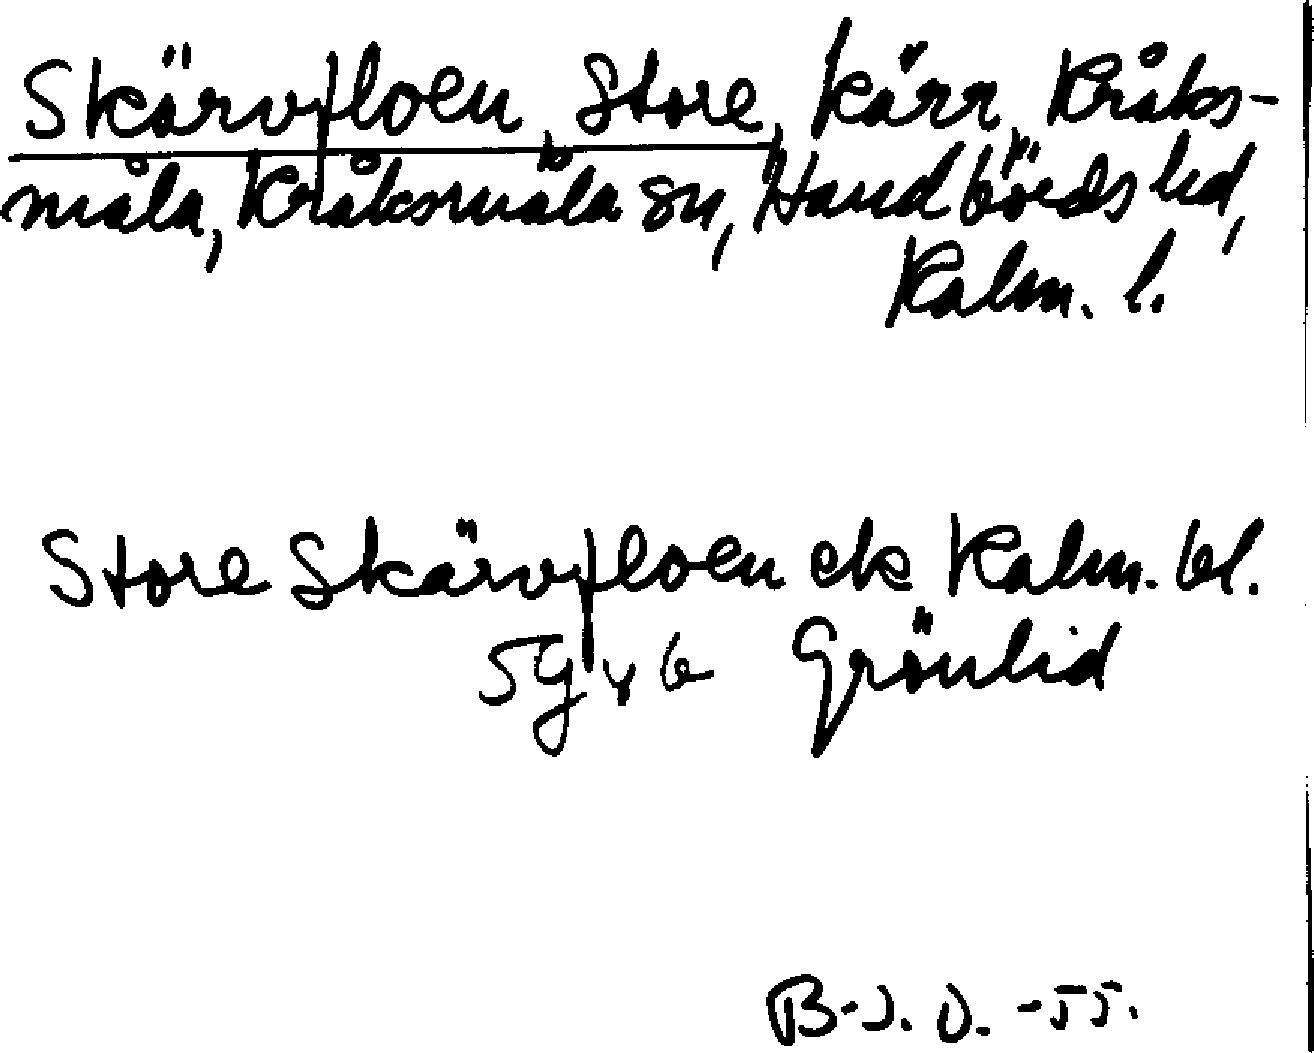 Skärvfloen, Store, kärr, Kråks-
måla, Kråksmåla sn, Handbörds hd,
Kalm. l.
Store Skärvfloen ek Kalm. bl.
5g v b Grönlid
B-J. O. -55.